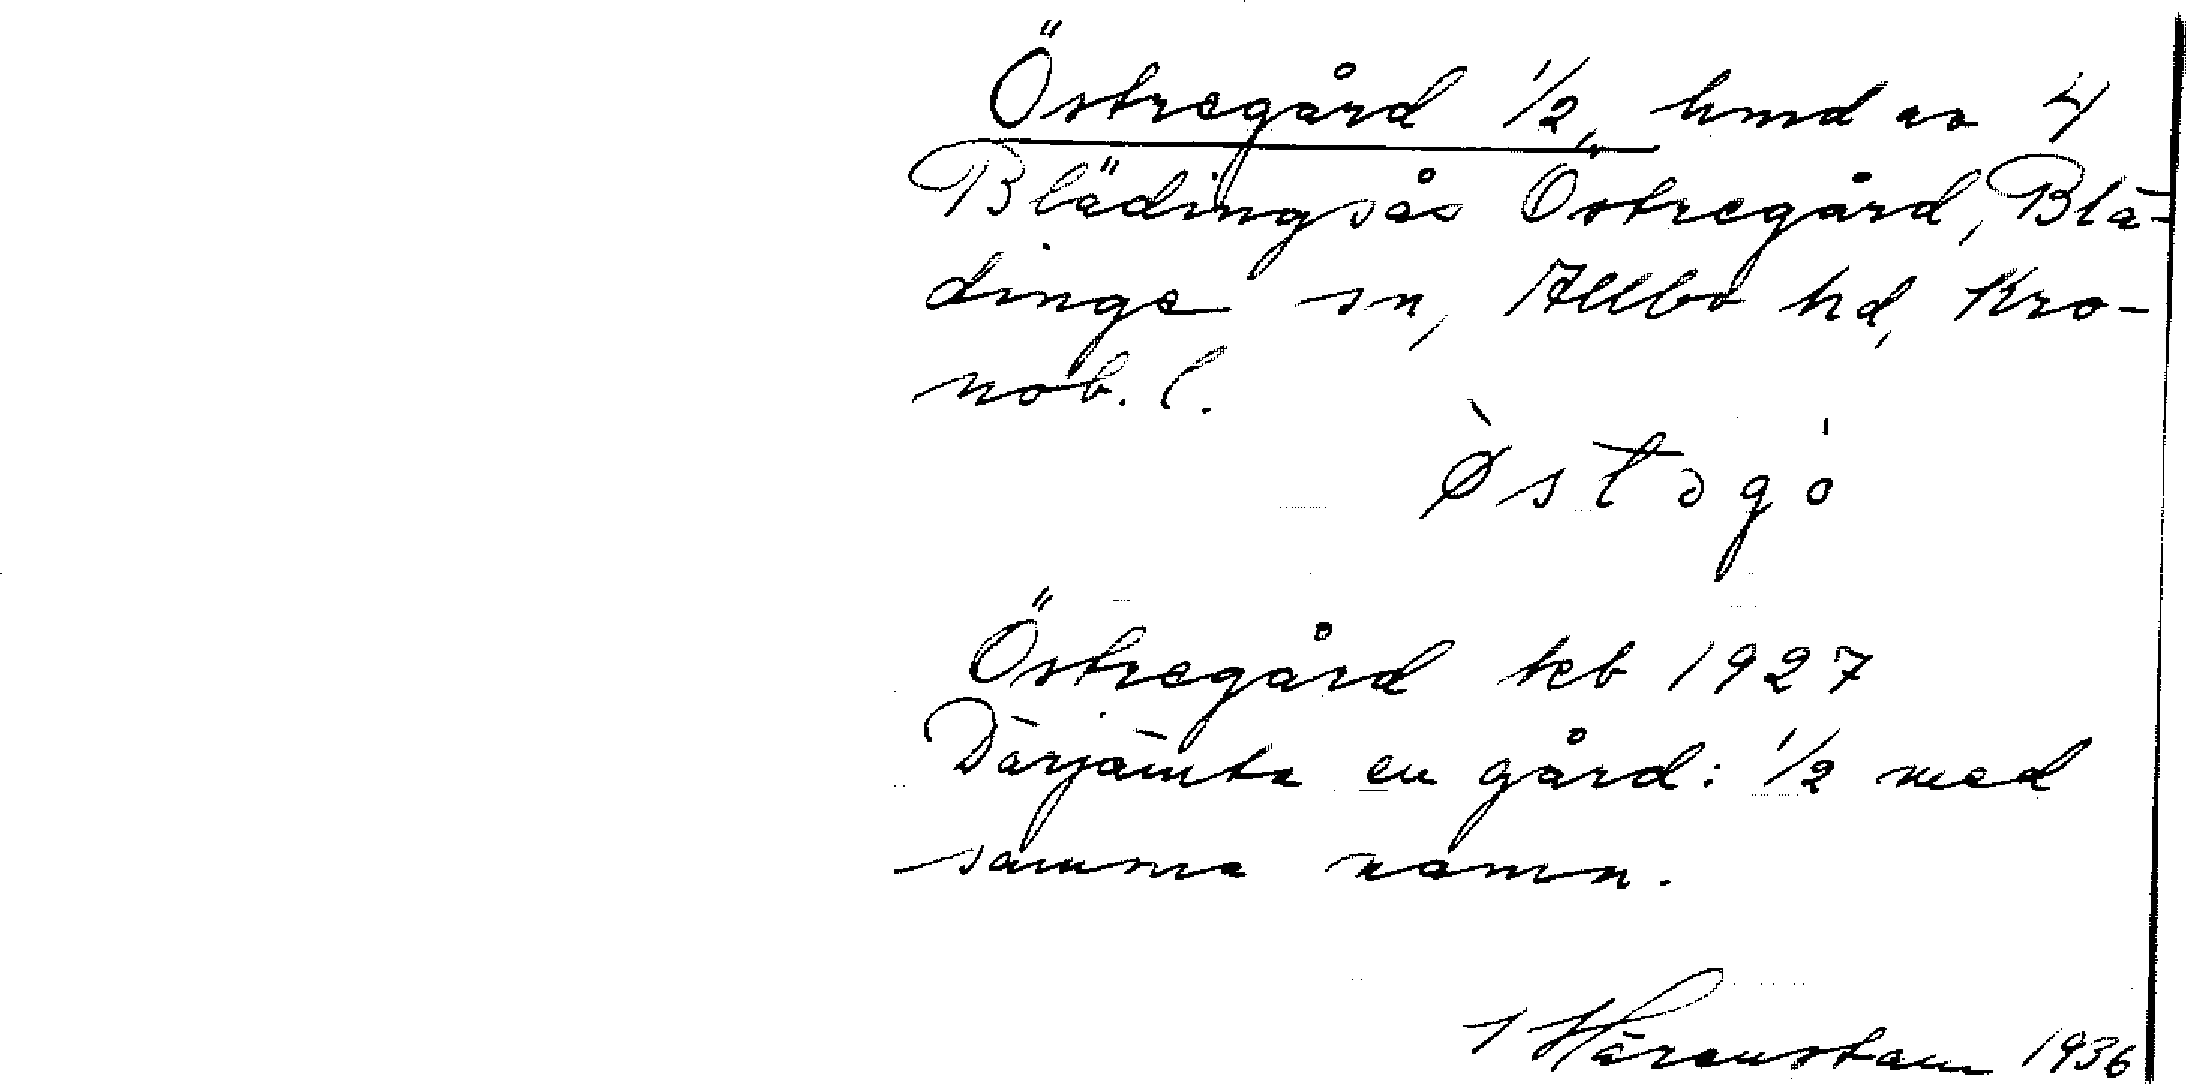 Östregård 1/2, hmd av 4
Blädingsås Östregård, Blä-
dinge sn, Allbo hd, Kro-
nob. l.
Östregård jeb 1927
Därjämte en gård: 1/2 med
samma namn.
Härenstam 1936